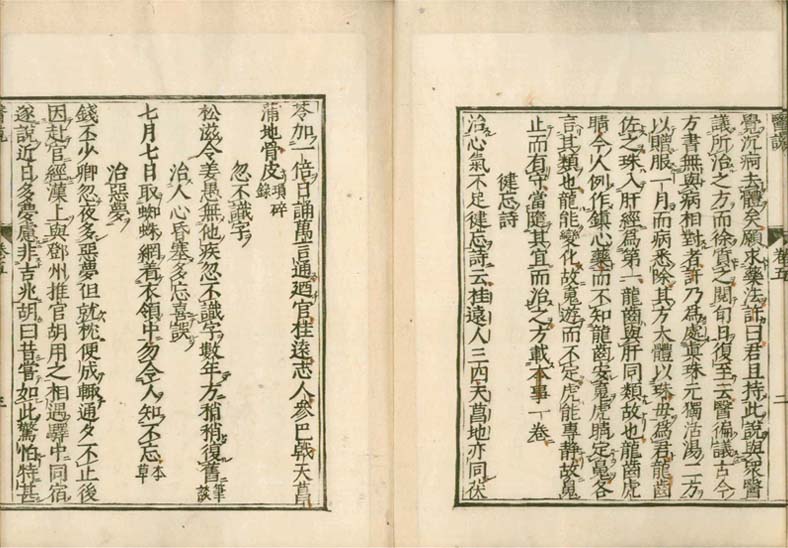 醫說 卷五 二
覺沉痾去體矣願求藥法許曰君且持此說與衆醫
議所治之方而徐質之閱旬日復至云醫徧議古今
方書無與病相對者許乃爲處眞珠元獨活湯二方
以贈服一月而病悉除其方大體以珠母爲君龍齒
佐之珠入肝經爲第一龍齒與肝同類故也龍齒虎
睛今人例作鎮心藥而不知龍齒安䰟虎睛定魄各
言其類也龍能變化故䰟遊而不定虎能專靜故魄
止而有守當隨其宜而治之方載本事一卷
健忘詩
治心氣不足健忘詩云桂遠人三四天菖地亦同伏
苓加一倍日誦萬言通廼官桂遠志人參巴戟天菖
蒲地骨皮 瑣碎録
忽不識字
松滋令姜愚無他疾忽不識字數年方稍稍復舊 筆談
治人心昏塞多忘喜誤
七月七日取蜘蛛網着衣領中勿令人知不忘 本草
治惡夢
錢丕少卿忽夜多惡夢但就枕便成輒通夕不止後
因赴官經漢上與鄧州推官胡用之相遇驛中同宿
遂說近日多夢慮非吉兆胡曰昔嘗如此驚怕特甚
醫說 卷五 三